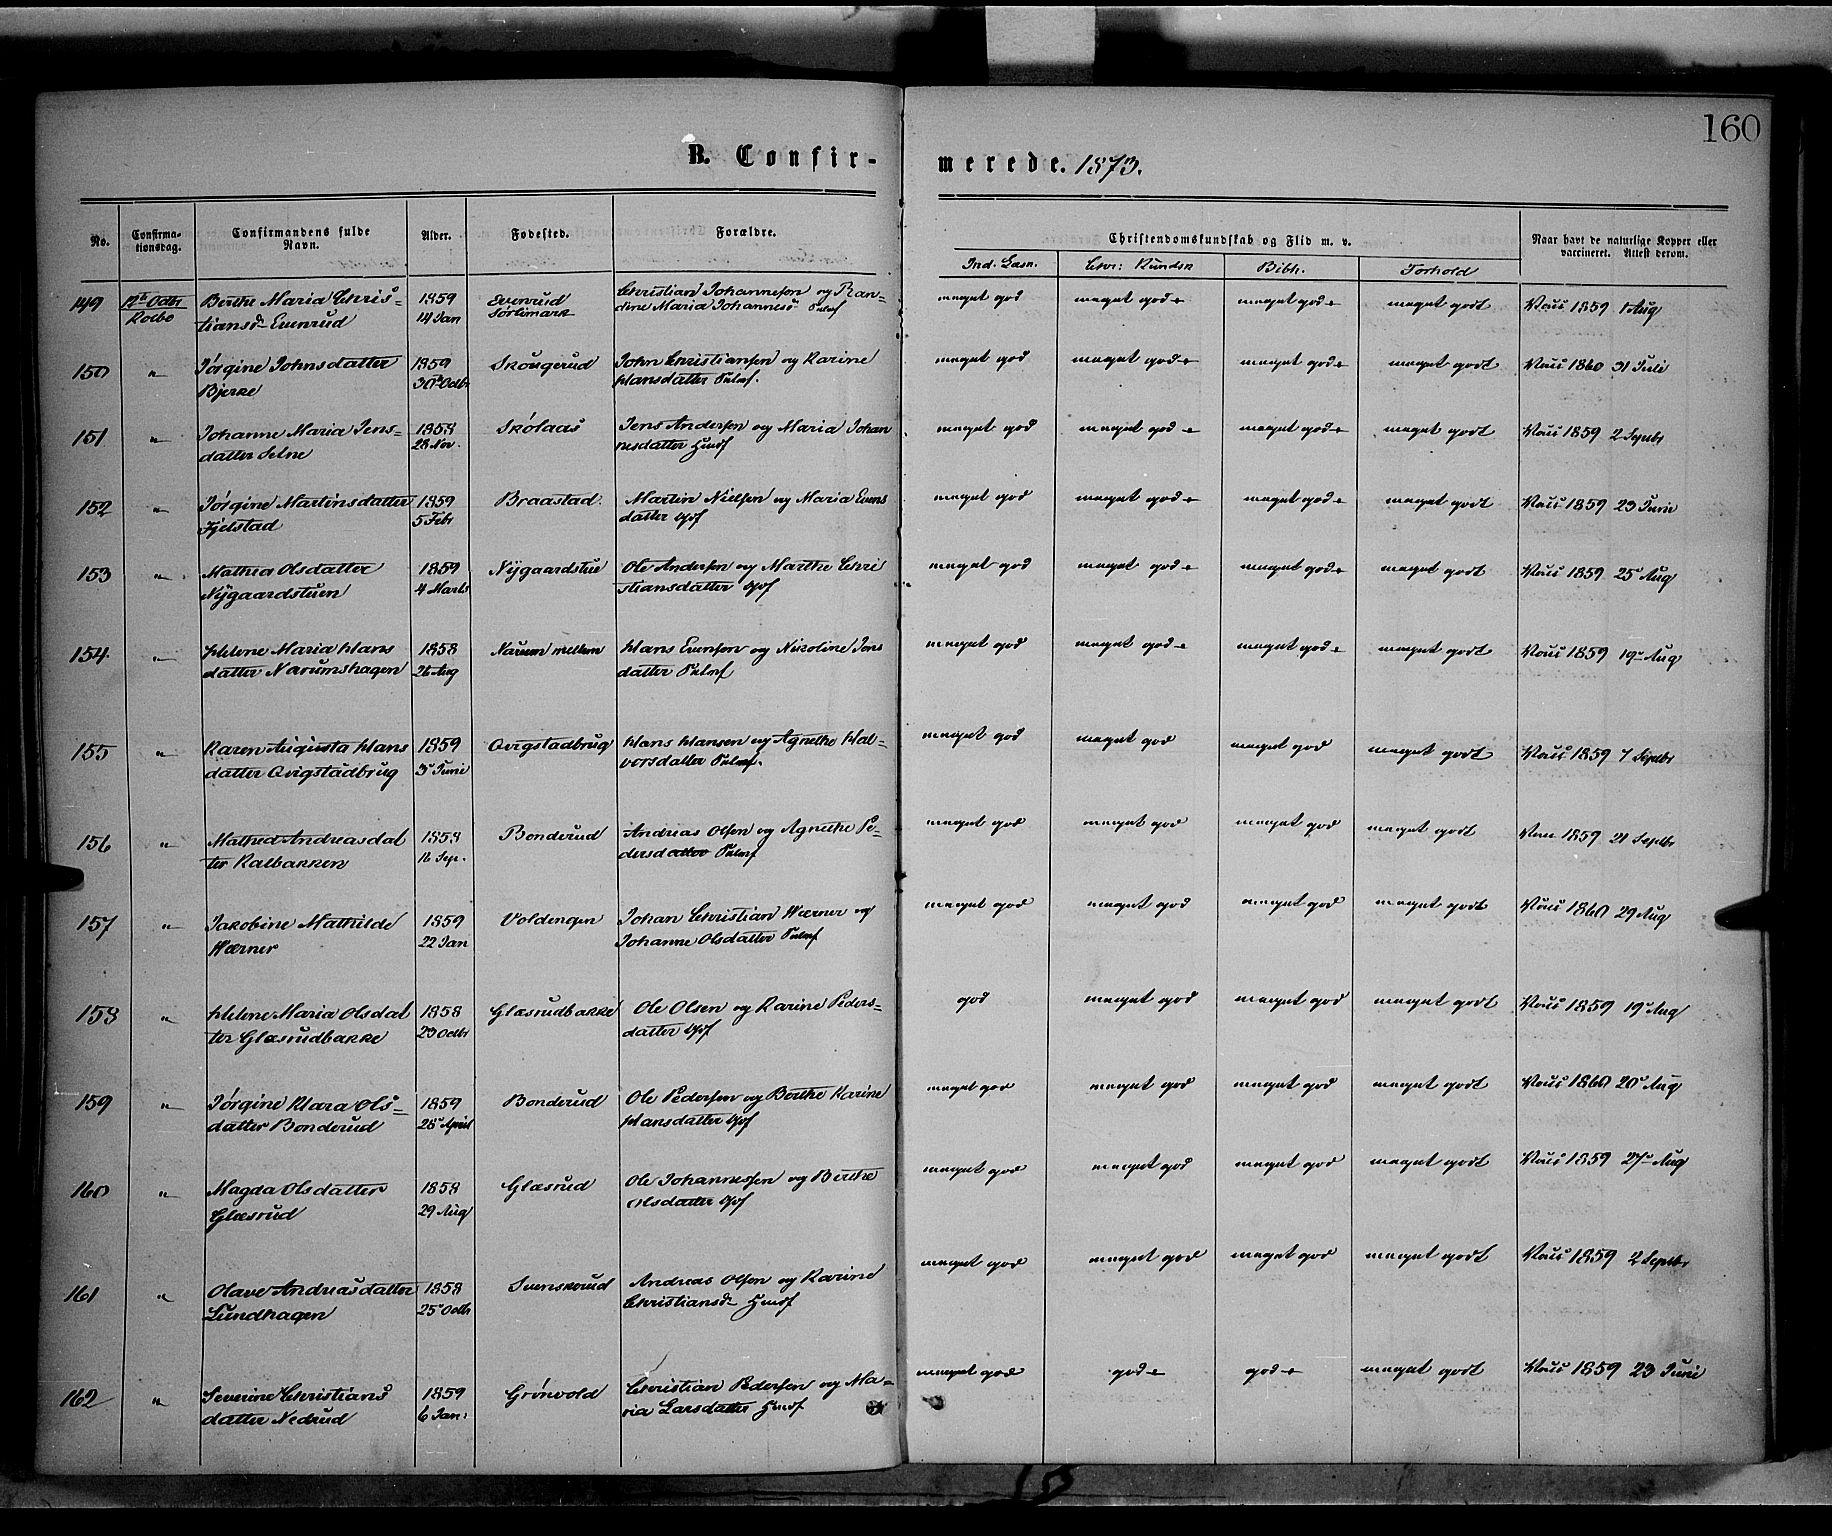 160
B. Confir-
merede. 1873.
No.
Confirma-
tionsdag.
Confirmandens fulde
Navn.
Alder.
Fødested.
Forældre.
Christendomskundskab og Flid m. v.
Naar havt de naturlige Kopper eller
vaccineret. Attest derom.
Ind. Læsn.
Chr: Kundsk
Bibh.
Forhold
149
12te Octbr
Kolbo
Berthe Maria Chris-
tiansdr Evenrud
1859
14 Jan
Evenrud
Sørlimark
Christian Johannesen og Ran-
dine Maria Johannesdr
meget god
meget god -
meget god -
meget godt
Vacc 1859 1 Aug
150
"
Jørgine Johnsdatter
Bjerke
1859
30te Octbr
Skougerud
John Christiansen og Karine
Hansdatter
meget god
meget god -
meget god -
meget godt
Vacc 1860 31 Juli
151
"
Johanne Maria Jens-
datter Selne
1858
28 Nov.
Skølaas
Jens Andersen og Maria Johan
nesdatter Husf
meget god
meget god -
meget god -
meget godt
Vacc 1859 2 Septbr
152
"
Jørgine Martinsdatter
Fjelstad
1859
5 Febr
Braastad
Martin Nielsen og Maria Evens
datter Gjof
meget god
meget god -
meget god -
meget godt
Vacc 1859 23 Juni
153
"
Mathea Olsdatter
Nygaardstuen
1859
4 Marts
Nygaardstue
Ole Andersen og Marthe Chri
stiansdatter Gjof
meget god
meget god -
meget god -
meget godt
Vacc 1859 25 Aug
154
"
Helene Maria Hans
datter Narumshagen
1858
26 Aug
Narum mellem
Hans Evensen og Nikoline Jons
datter
meget god
meget god -
meget god -
meget godt
Vacc 1859 19 Aug
155
"
Karen Augusta Hans
datter Qvigstadbrug
1859
3 Juni
Qvigstadbrug
Hans Hansen og Agnethe Hal-
vorsdatter
meget god
meget god
meget god
meget godt
Vacc 1859 7 Septbr
156
"
Mathea Andreasdat
ter Kalbakken
1858
16 Sep.
Bonderud
Andreas Olsen og Agnethe Pe-
dersdatter
meget god
meget god
meget god
meget godt
Vacc 1859 21 Septbr
157
"
Jakobine Mathilde
Wærner
1859
22 Jan
Voldengen
Johan Christian Wærner og
Johanne Olsdatter
meget god
meget god
meget god
meget godt
Vacc 1860 29 Aug
158
"
Helene Maria Olsdat
ter Glæsrudbakke
1858
23 Octbr
Glæsrudbakke
Ole Olsen og Karine Peders-
datter Gjof
god
meget god
meget god
meget godt
Vacc 1859 19 Aug
159
"
Jørgine Klara Ols-
datter Bonderud
1859
28 April
Bonderud
Ole Pedersen og Berthe Karine
Hansdatter Gjof
meget god
meget god
meget god
meget godt
Vacc 1860 20 Aug
160
"
Magda Olsdatter
Glæsrud
1858
29 Aug
Glæsrud
Ole Johannessen og Berthe
Olsdatter Gjof
meget god
meget god
meget god
meget godt
Vacc 1859 27 Aug
161
"
Olave Andreasdatter
Lundhagen
1858
25 Octbr
Svenskerud
Andreas Olsen og Karine
Christiansdr Husf
meget god
meget god
meget god
meget godt
Vacc 1859 2 Septbr
162
"
Severine Christians
datter Nedrud
1859
6 Jan.
Grønvold
Christian Pedersen og Ma-
ria Larsdatter Husf
meget god
god -
god -
meget godt
Vacc 1859 23 Juni